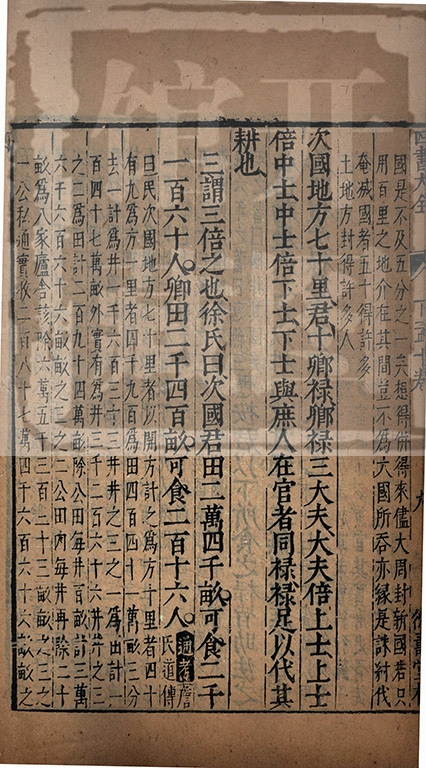 國是不及五分之一矣想得併得來儘大周封新國若只
用百里之地介在其間豈不為大國所吞亦緣是誅紂伐
奄滅國者五十得許多
土地方封得許多人
次國地方七十里君十卿祿卿祿三大夫大夫倍上士上士
倍中士中士倍下士下士與庶人在官者同祿祿足以代其
耕也
三謂三倍之也徐氏曰次國君田二萬四千畝可食二千
一百六十人卿田二千四百畝可食二百十六人 通考 詹
氏道傳
曰次國地方七十里者以開方計之為方千里者四十
有九為方一里者四千九百為田四百四十一萬畝三分
去一計為井一千六百三十三井井之三之一為田計一
百四十七萬畝外實有為井三千二百六十六井三之
之二為田計二百九十四萬畝除公田每井百畝計三萬
六千六百六十六畝畝之三之二公田內每井再除二十
畝為八家廬舍該除六萬五千三百三十三畝畝之三之
一公私通實收二百八十七萬四千六百六十六畝畝之